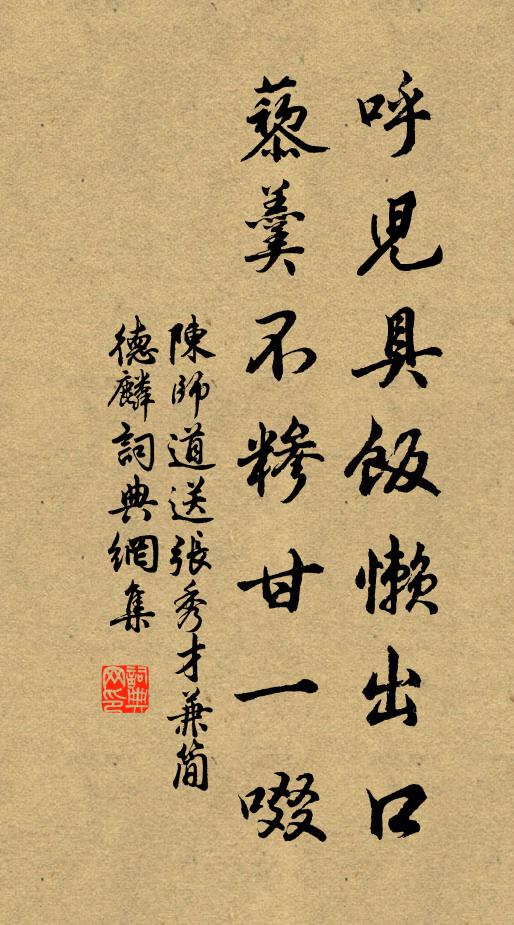 呼兒具飯懶出口
藜羹不糝甘一啜
陳師道送張秀才兼簡
德麟詞典網集
詞典
网印